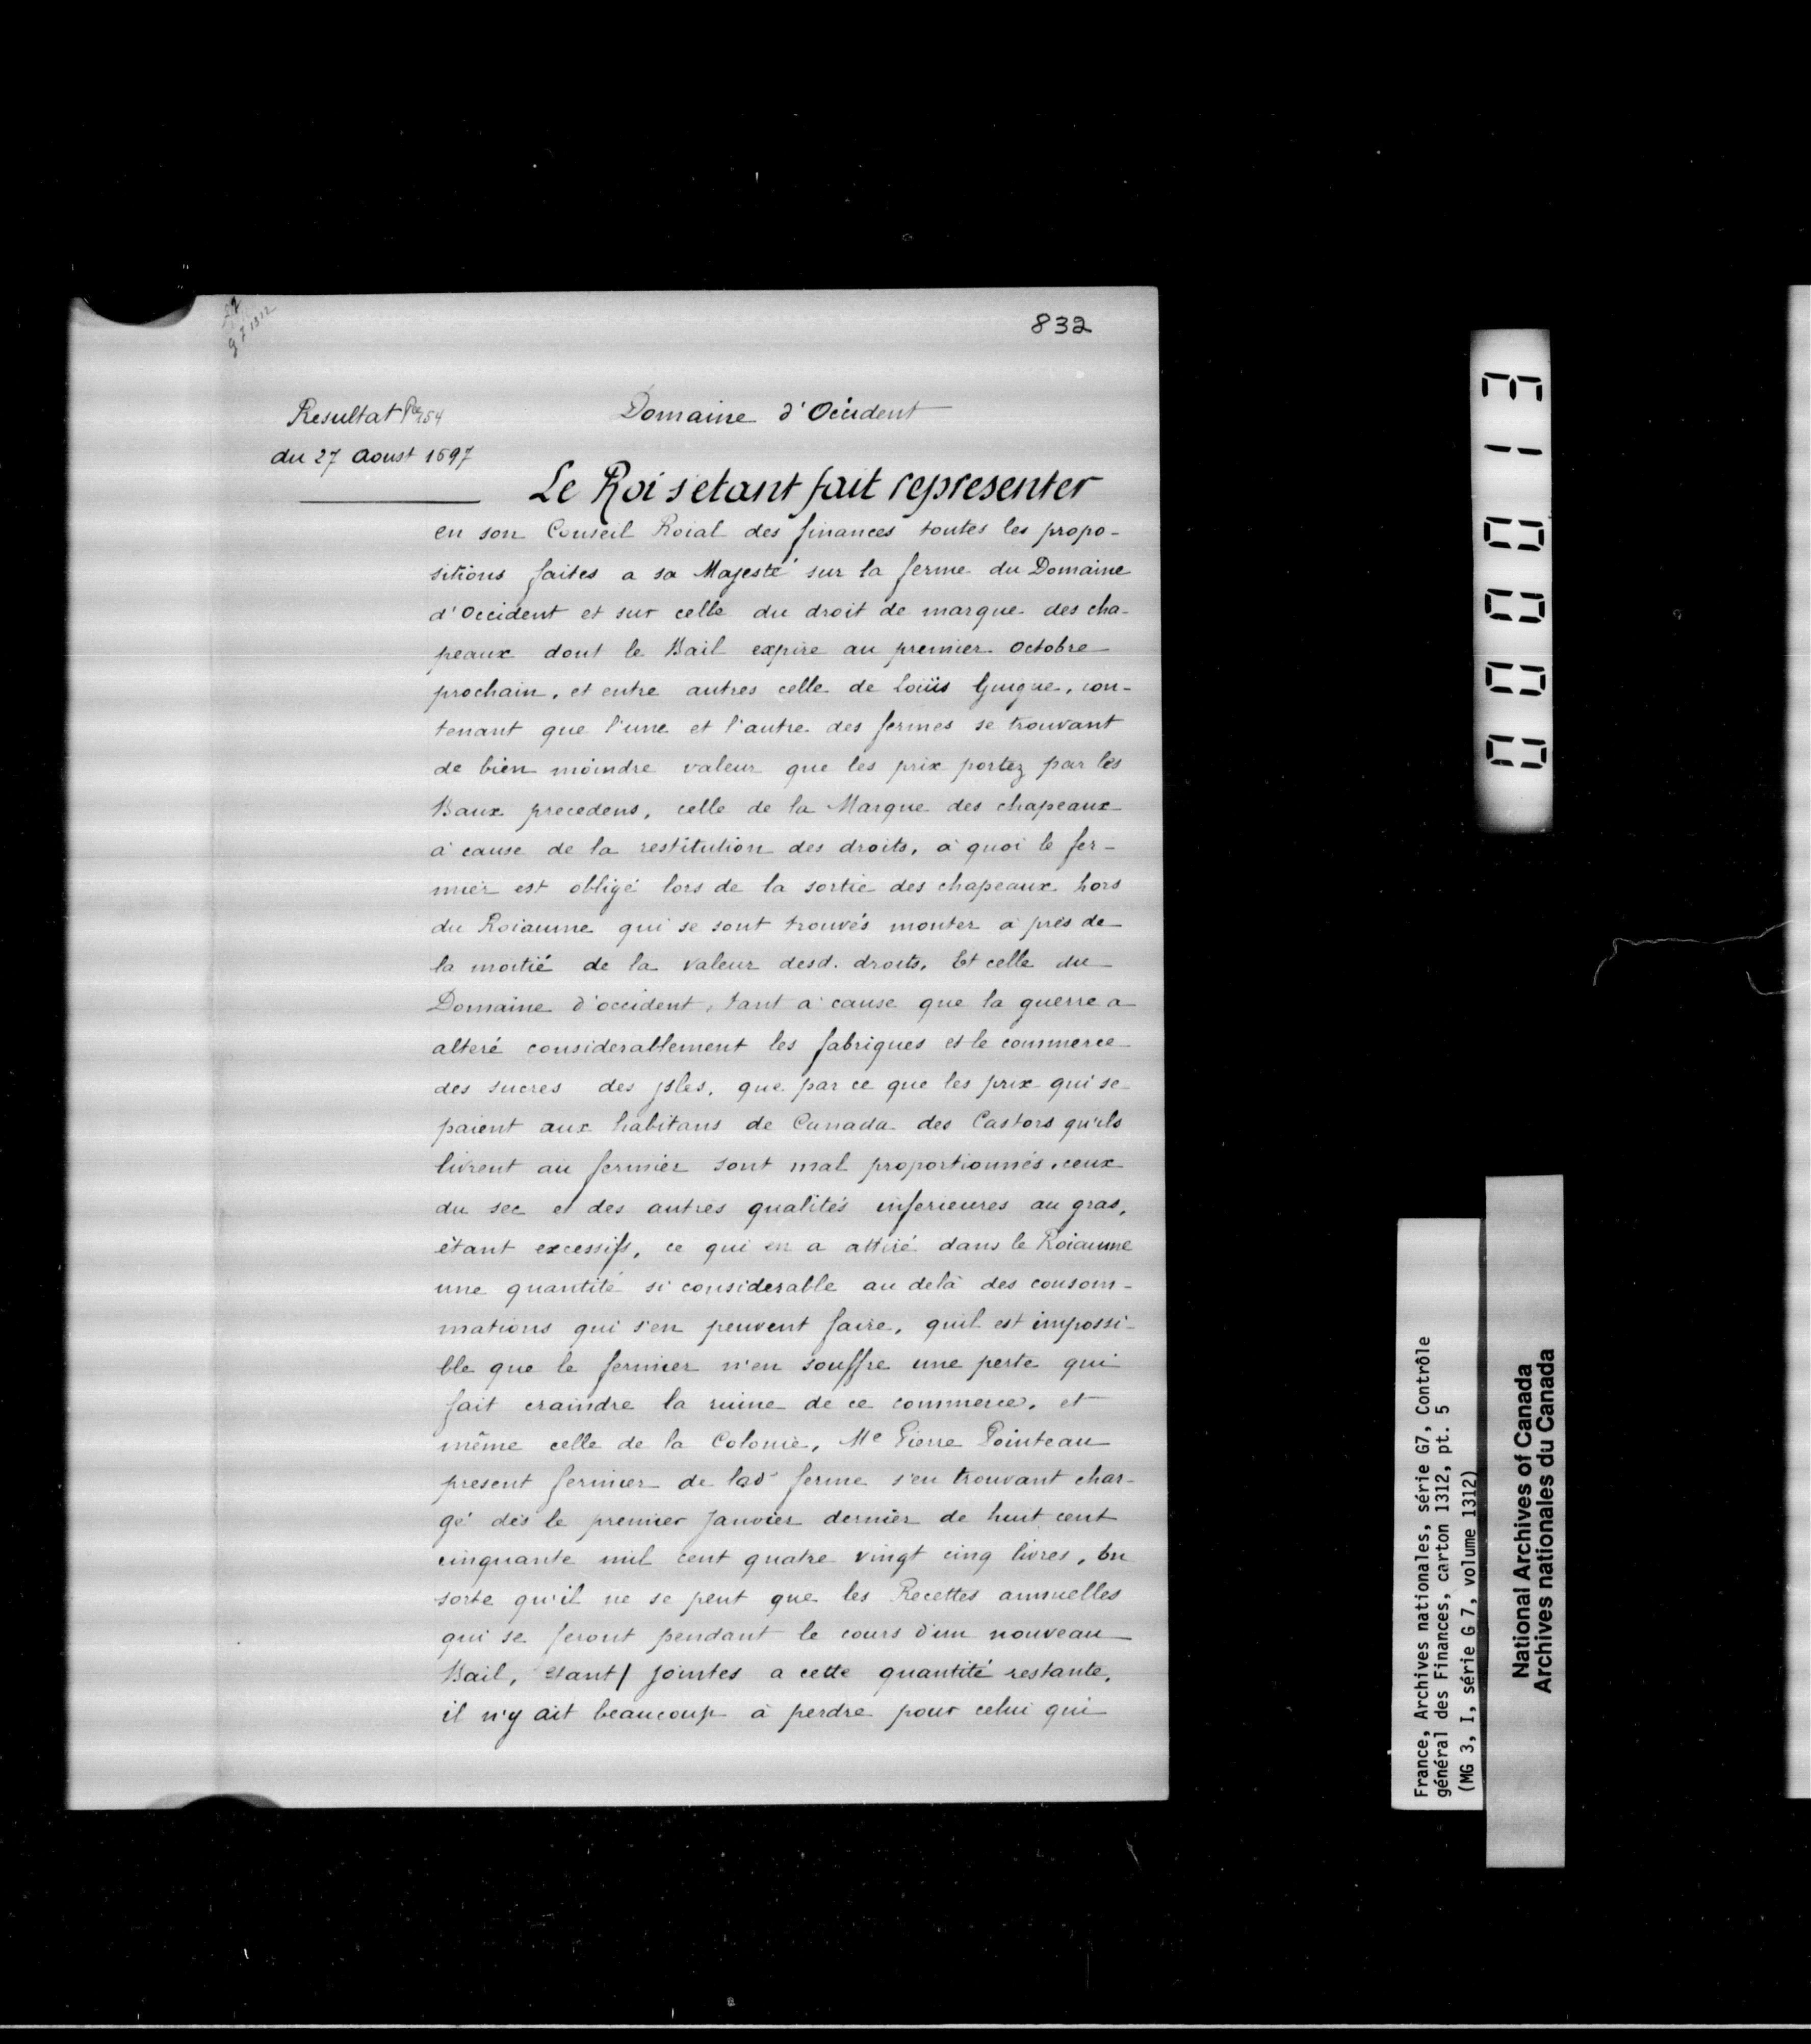 G 7 1312
832
Resultat Pce 154
du 27 Aoust 1697
Domaine d'Occident
Le Roi s'etant fait representer
en son Conseil Roial des finances toutes les propo-
sitions faites a sa Majesté sur la ferme du Domaine
d'Occident et sur celle du droit de marque des cha-
peaux dont le Bail expire au premier Octobre
prochain, et entre autres celle de Loüis Guigue, con-
tenant que l'une et l'autre des fermes se trouvant
de bien moindre valeur que les prix portez par les
Baux precedens, celle de la Marque des chapeaux
à cause de la restitution des droits, à quoi le fer-
mier est obligé lors de la sortie des chapeaux hors
du Roiaume qui se sont trouvés monter à près de
la moitié de la valeur desd. droits, Et celle du
Domaine d'occident, tant à cause que la guerre a
alteré considerablement les fabriques et le commerce
des sucres des Isles, que par ce que les prix qui se
paient aux habitans de Canada des Castors qu'ils
livrent au fermier sont mal proportionnés, ceux
du sec et des autres qualités inferieures au gras,
étant excessifs, ce qui en a attiré dans le Roiaume
une quantité si considerable au delà des consom-
mations qui s'en peuvent faire, quil est impossi-
ble que le fermier n'en souffre une perte qui
fait craindre la ruine de ce commerce, et
même celle de la Colonie, Me Pierre Pointeau
present fermier de lad. ferme s'en trouvant char-
gé dès le premier Janvier dernier de huit cent
cinquante mil cent quatre vingt cinq livres, En
sorte qu'il ne se peut que les Recettes annuelles
qui se feront pendant le cours d'un nouveau
Bail, etant/ jointes a cette quantité restante,
il n'y ait beaucoup à perdre pour celui qui
000013
France, Archives nationales, série G7, Contrôle
général des Finances, carton 1312, pt. 5
(MG 3, I, série G 7, volume 1312)
National Archives of Canada
Archives nationales du Canada